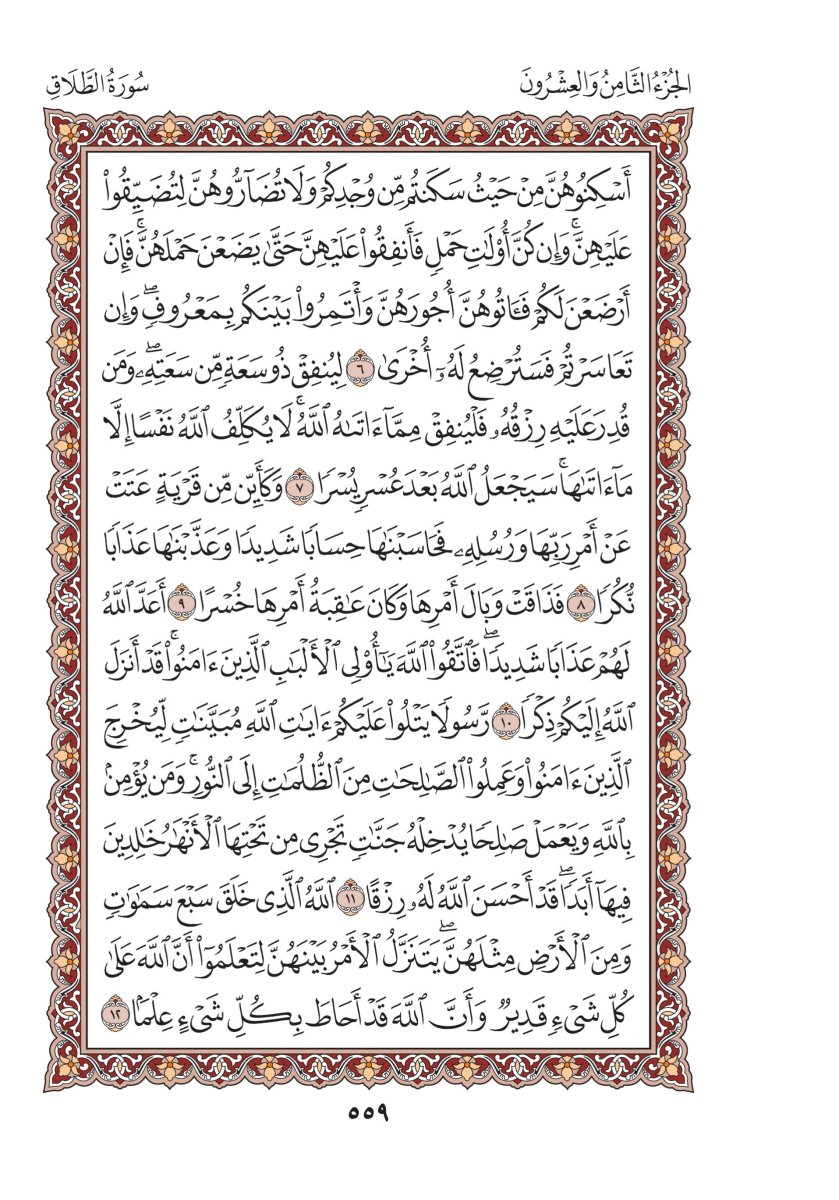 الجُزْءُ الثَّامِنُ وَالعِشْرُونَ
سُورَةُ الطَّلَاقِ
أَسْكِنُوهُنَّ مِنْ حَيْثُ سَكَنتُم مِّن وُجْدِكُمْ وَلَا تُضَآرُّوهُنَّ لِتُضَيِّقُوا۟
عَلَيْهِنَّۚ وَإِن كُنَّ أُو۟لَٰتِ حَمْلٍ فَأَنفِقُوا۟ عَلَيْهِنَّ حَتَّىٰ يَضَعْنَ حَمْلَهُنَّۚ فَإِنْ
أَرْضَعْنَ لَكُمْ فَـَٔاتُوهُنَّ أُجُورَهُنَّ وَأْتَمِرُوا۟ بَيْنَكُم بِمَعْرُوفٍۖ وَإِن
تَعَاسَرْتُمْ فَسَتُرْضِعُ لَهُۥٓ أُخْرَىٰ ٦ لِيُنفِقْ ذُو سَعَةٍ مِّن سَعَتِهِۦۖ وَمَن
قُدِرَ عَلَيْهِ رِزْقُهُۥ فَلْيُنفِقْ مِمَّآ ءَاتَىٰهُ ٱللَّهُۚ لَا يُكَلِّفُ ٱللَّهُ نَفْسًا إِلَّا
مَآ ءَاتَىٰهَاۚ سَيَجْعَلُ ٱللَّهُ بَعْدَ عُسْرٍ يُسْرًا ٧ وَكَأَيِّن مِّن قَرْيَةٍ عَتَتْ
عَنْ أَمْرِ رَبِّهَا وَرُسُلِهِۦ فَحَاسَبْنَٰهَا حِسَابًا شَدِيدًا وَعَذَّبْنَٰهَا عَذَابًا
نُّكْرًا ٨ فَذَاقَتْ وَبَالَ أَمْرِهَا وَكَانَ عَٰقِبَةُ أَمْرِهَا خُسْرًا ٩ أَعَدَّ ٱللَّهُ
لَهُمْ عَذَابًا شَدِيدًاۖ فَٱتَّقُوا۟ ٱللَّهَ يَٰٓأُو۟لِى ٱلْأَلْبَٰبِ ٱلَّذِينَ ءَامَنُوا۟ۚ قَدْ أَنزَلَ
ٱللَّهُ إِلَيْكُمْ ذِكْرًا ١٠ رَّسُولًا يَتْلُوا۟ عَلَيْكُمْ ءَايَٰتِ ٱللَّهِ مُبَيِّنَٰتٍ لِّيُخْرِجَ
ٱلَّذِينَ ءَامَنُوا۟ وَعَمِلُوا۟ ٱلصَّٰلِحَٰتِ مِنَ ٱلظُّلُمَٰتِ إِلَى ٱلنُّورِۚ وَمَن يُؤْمِنۢ
بِٱللَّهِ وَيَعْمَلْ صَٰلِحًا يُدْخِلْهُ جَنَّٰتٍ تَجْرِى مِن تَحْتِهَا ٱلْأَنْهَٰرُ خَٰلِدِينَ
فِيهَآ أَبَدًاۖ قَدْ أَحْسَنَ ٱللَّهُ لَهُۥ رِزْقًا ١١ ٱللَّهُ ٱلَّذِى خَلَقَ سَبْعَ سَمَٰوَٰتٍ
وَمِنَ ٱلْأَرْضِ مِثْلَهُنَّۖ يَتَنَزَّلُ ٱلْأَمْرُ بَيْنَهُنَّ لِتَعْلَمُوٓا۟ أَنَّ ٱللَّهَ عَلَىٰ
كُلِّ شَىْءٍ قَدِيرٌ وَأَنَّ ٱللَّهَ قَدْ أَحَاطَ بِكُلِّ شَىْءٍ عِلْمًۢا ١٢
٥٥٩